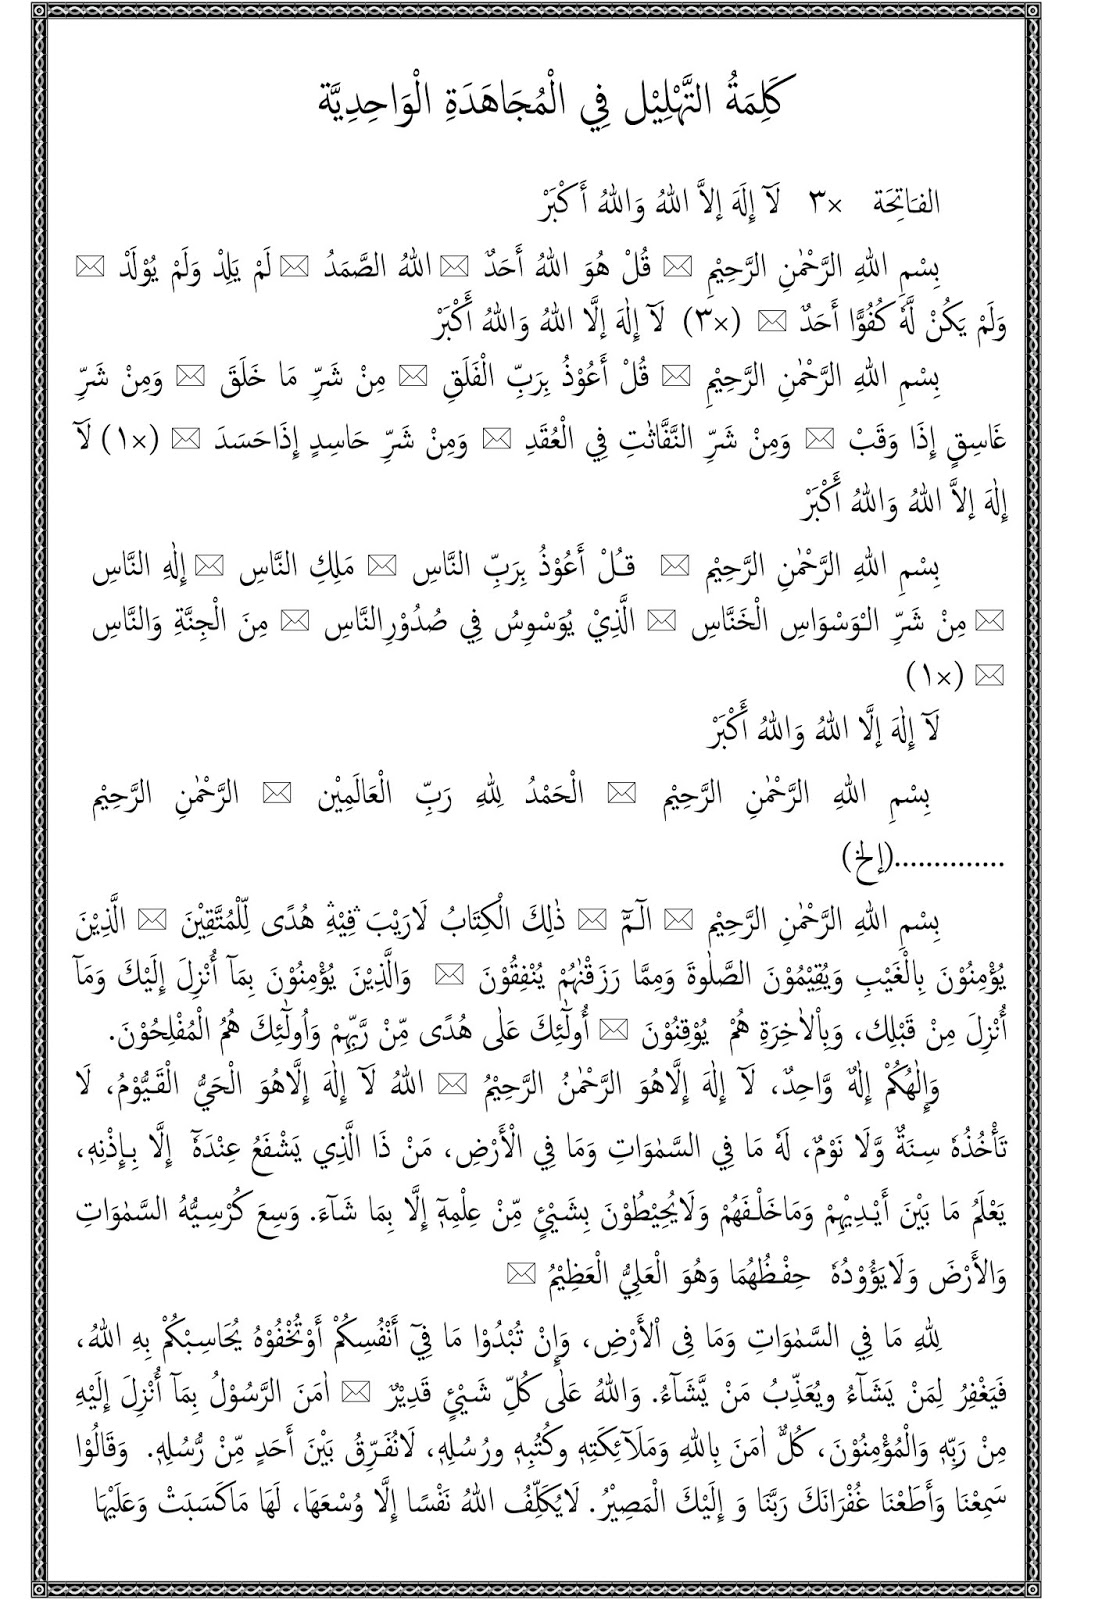 كَلِمَةُ التَّهْلِيْل فِي الْمُجَاهَدَةِ الْوَاحِدِيَّة
الفَاتِحَة ×٣ لَآ إِلَهَ إلاَّ اللهُ وَاللهُ أَكْبَرْ
بِسْمِ اللهِ الرَّحْمٰنِ الرَّحِيْمِ ✉ قُلْ هُوَ اللهُ أَحَدٌ ✉ اللهُ الصَّمَدُ ✉ لَمْ يَلِدْ وَلَمْ يُوْلَدْ ✉
وَلَمْ يَكُنْ لَّهٗ كُفُوًا أَحَدٌ ✉ (×٣) لَآ إِلٰهَ إِلَّا اللهُ وَاللهُ أَكْبَرْ
بِسْمِ اللهِ الرَّحْمٰنِ الرَّحِيْمِ ✉ قُلْ أَعُوْذُ بِرَبِّ الْفَلَقِ ✉ مِنْ شَرِّ مَا خَلَقَ ✉ وَمِنْ شَرِّ
غَاسِقٍ إِذَا وَقَبْ ✉ وَمِنْ شَرِّ النَّفَّاثٰتِ فِي الْعُقَدِ ✉ وَمِنْ شَرِّ حَاسِدٍ إِذَاحَسَدَ ✉ (×١) لَآ
إِلٰهَ إلاَّ اللهُ وَاللهُ أَكْبَرْ
بِسْمِ اللهِ الرَّحْمٰنِ الرَّحِيْمِ ✉ قُلْ أَعُوْذُ بِرَبِّ النَّاسِ ✉ مَلِكِ النَّاسِ ✉ إِلٰهِ النَّاسِ
✉ مِنْ شَرِّ الْوَسْوَاسِ الْخَنَّاسِ ✉ الَّذِيْ يُوَسْوِسُ فِي صُدُوْرِالنَّاسِ ✉ مِنَ الْجِنَّةِ وَالنَّاسِ
✉ (×١)
لَآ إِلٰهَ إلَّا اللهُ وَاللهُ أَكْبَرْ
بِسْمِ اللهِ الرَّحْمٰنِ الرَّحِيْمِ ✉ الْحَمْدُ لِلهِ رَبِّ الْعَالَمِيْن ✉ الرَّحْمٰنِ الرَّحِيْم
..............(إلخ)
بِسْمِ اللهِ الرَّحْمٰنِ الرَّحِيْمِ ✉ الٓمّٓ ✉ ذٰلِكَ الْكِتَابُ لَارَيْبَ ۛفِيْهِ ۛ هُدًى لِّلْمُتَّقِيْنَ ✉ الَّذِيْنَ
يُؤْمِنُوْنَ بِالْغَيْبِ وَيُقِيْمُوْنَ الصَّلٰوةَ وَمِمَّا رَزَقْنٰهُمْ يُنْفِقُوْنَ ✉ وَالَّذِيْنَ يُؤْمِنُوْنَ بِمَآ أُنْزِلَ إِلَيْكَ وَمَآ
أُنْزِلَ مِنْ قَبْلِكَ، وَبِاْلاٰخِرَةِ هُمْ يُوْقِنُوْنَ ✉ أُولٰٓئِكَ عَلٰى هُدًى مِّنْ رَّبِّهِمْ وَاُولٰٓئِكَ هُمُ الْمُفْلِحُوْنَ.
وَإِلٰهُكُمْ إِلٰهٌ وَّاحِدٌ، لَآ إِلٰهَ إِلَّاهُوَ الرَّحْمٰنُ الرَّحِيْمُ ✉ اللهُ لَآ إِلٰهَ إِلَّاهُوَ الْحَيُّ الْقَيُّوْمُ، لَا
تَأْخُذُهٗ سِنَةٌ وَّلَا نَوْمٌ، لَهٗ مَا فِي السَّمٰوَاتِ وَمَا فِي الْأَرْضِ، مَنْ ذَا الَّذِي يَشْفَعُ عِنْدَهٗٓ إِلَّا بِإِذْنِهٖ،
يَعْلَمُ مَا بَيْنَ أَيْدِيْهِمْ وَمَاخَلْفَهُمْ وَلَايُحِيْطُوْنَ بِشَيْئٍ مِّنْ عِلْمِهٖٓ إِلَّا بِمَا شَآءَ. وَسِعَ كُرْسِيُّهُ السَّمٰوَاتِ
وَالأَرْضَ وَلَايَؤُوْدُهٗ حِفْظُهُمَا وَهُوَ الْعَلِيُّ الْعَظِيْمُ ✉
لِلهِ مَا فِي السَّمٰوَاتِ وَمَا فِى اْلأَرْضِ، وَإِنْ تُبْدُوْا مَا فِيٓ أَنْفُسِكُمْ أَوْتُخْفُوْهُ يُحَاسِبْكُمْ بِهِ اللهُ،
فَيَغْفِرُ لِمَنْ يَشَآءُ ويُعَذِّبُ مَنْ يَّشَآءُ. وَاللهُ عَلٰى كُلِّ شَيْئٍ قَدِيْرٌ ✉ اٰمَنَ الرَّسُوْلُ بِمَآ أُنْزِلَ إِلَيْهِ
مِنْ رَبِّهٖ وَالْمُؤْمِنُوْنَ، كُلٌّ اٰمَنَ بِاللهِ وَمَلَآئِكَتِهٖ وكُتُبِهٖ ورُسُلِهٖ، لَانُفَرِّقُ بَيْنَ أَحَدٍ مِّنْ رُّسُلِهٖ. وَقَالُوْا
سَمِعْنَا وَأَطَعْنَا غُفْرَانَكَ رَبَّنَا وَ إِلَيْكَ الْمَصِيْرُ. لَايُكَلِّفُ اللهُ نَفْسًا إِلَّا وُسْعَهَا، لَهَا مَاكَسَبَتْ وَعَلَيْهَا